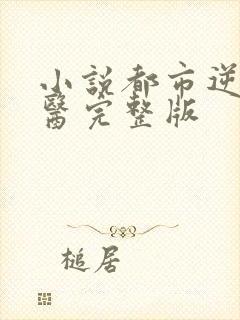 小說都市逆
醫完整版
槌居